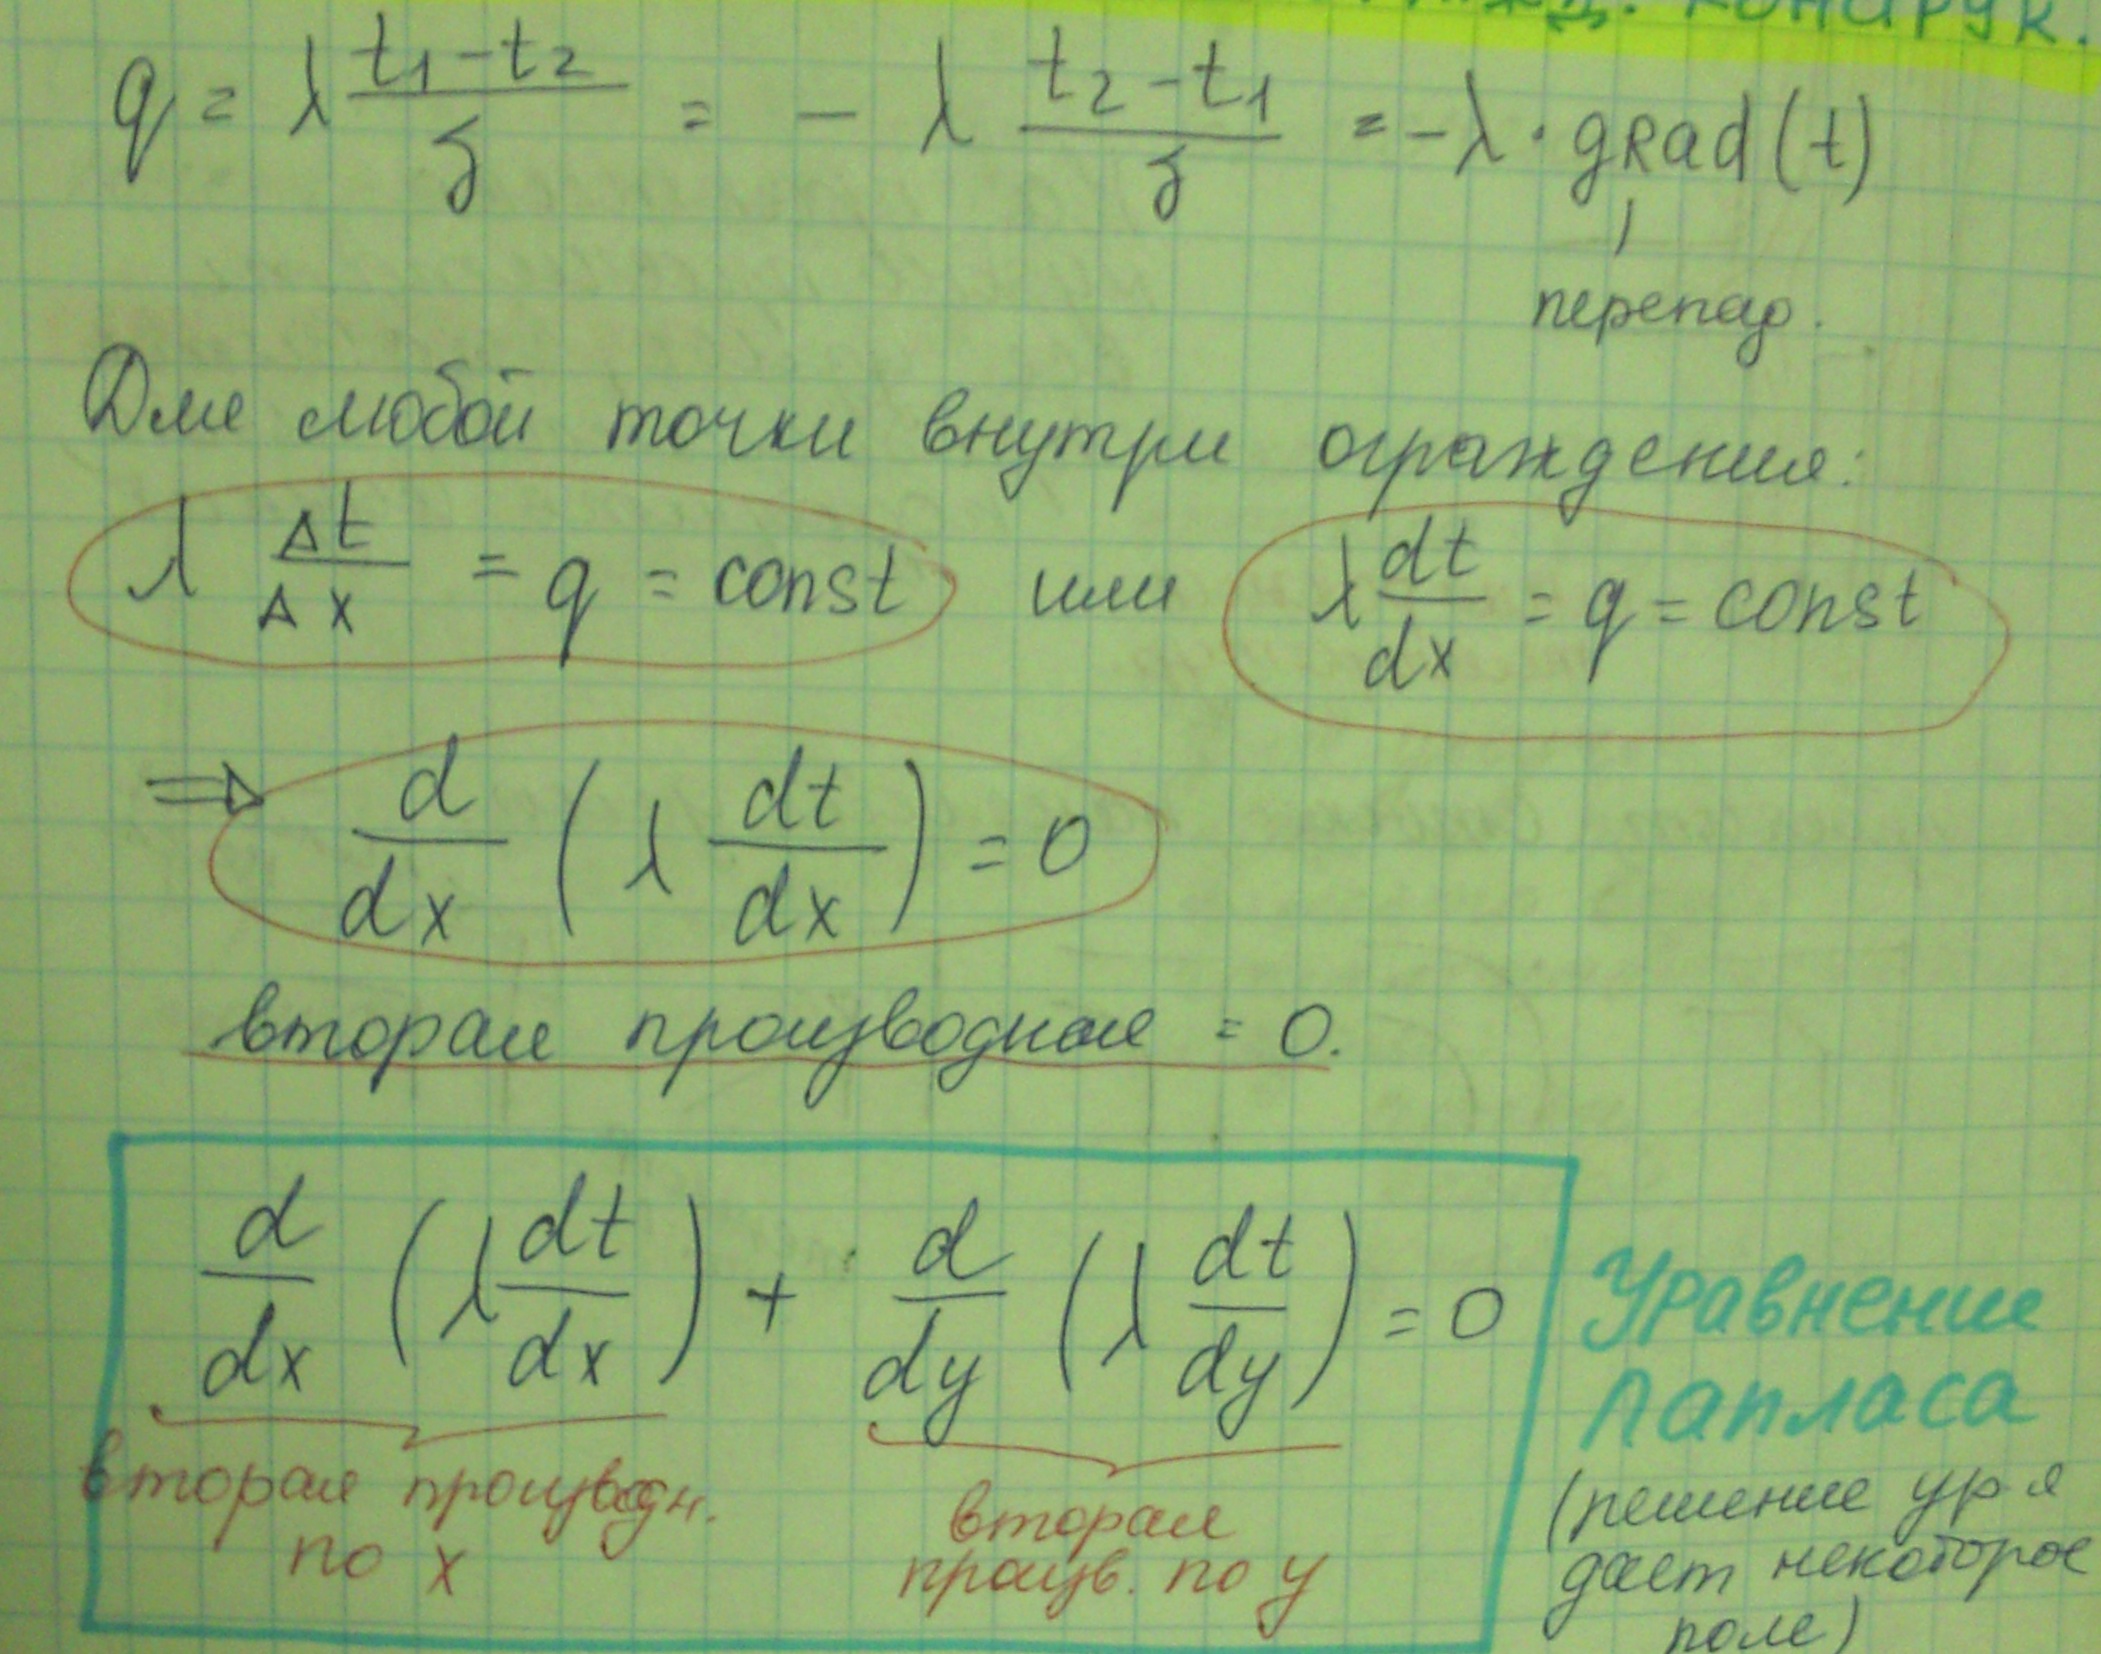 q = λ (t₁ - t₂)/δ = - λ (t₂ - t₁)/δ = - λ · grad(t)
перепад.
Для любой точки внутри ограждения:
λ Δt/Δx = q = const или λ dt/dx = q = const
⇒ d/dx (λ dt/dx) = 0
вторая производная = 0.
d/dx (λ dt/dx) + d/dy (λ dt/dy) = 0
Уравнение
Лапласа
вторая производн.
по x
вторая
произв. по y
(решение ур-я
дает некоторое
поле)